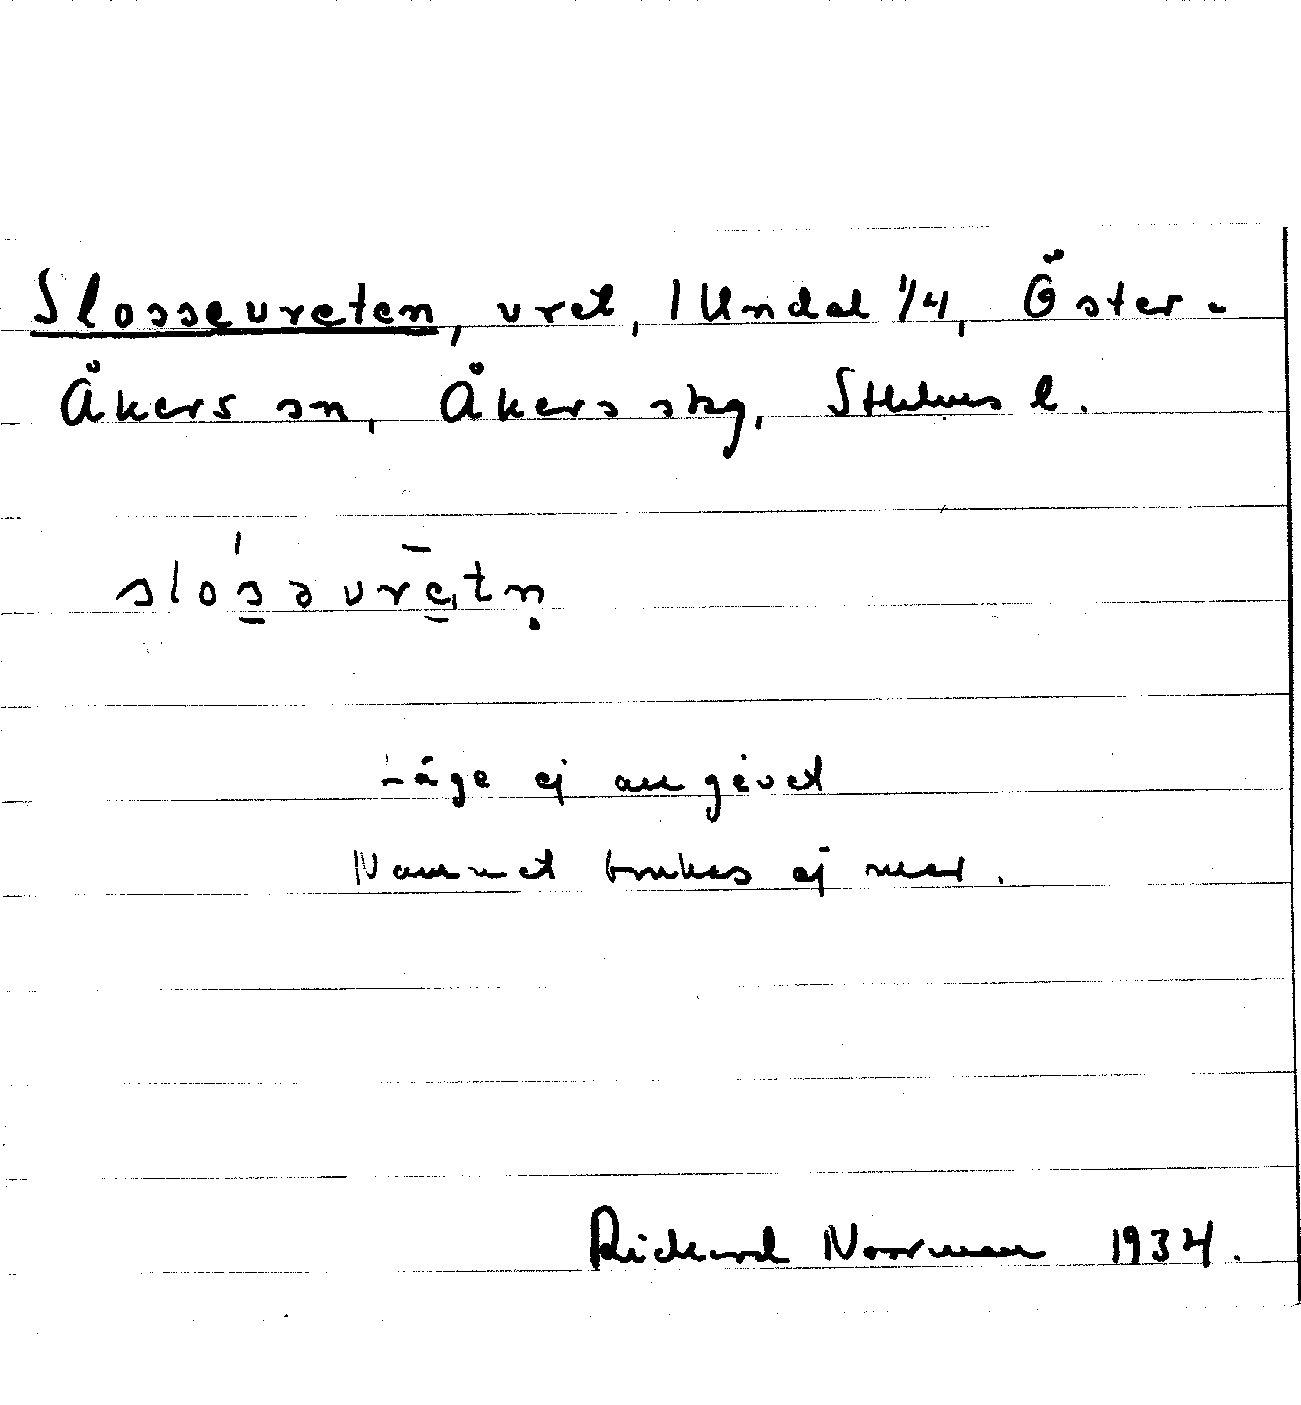 Slossevreten, vret, 1 Undal 1/4, Öster-
Åkers sn, Åkers skg, Sthlms l.
slosəvretn̥
Läge ej angivet
Namnet brukas ej mer.
Rickard Noorman 1934.